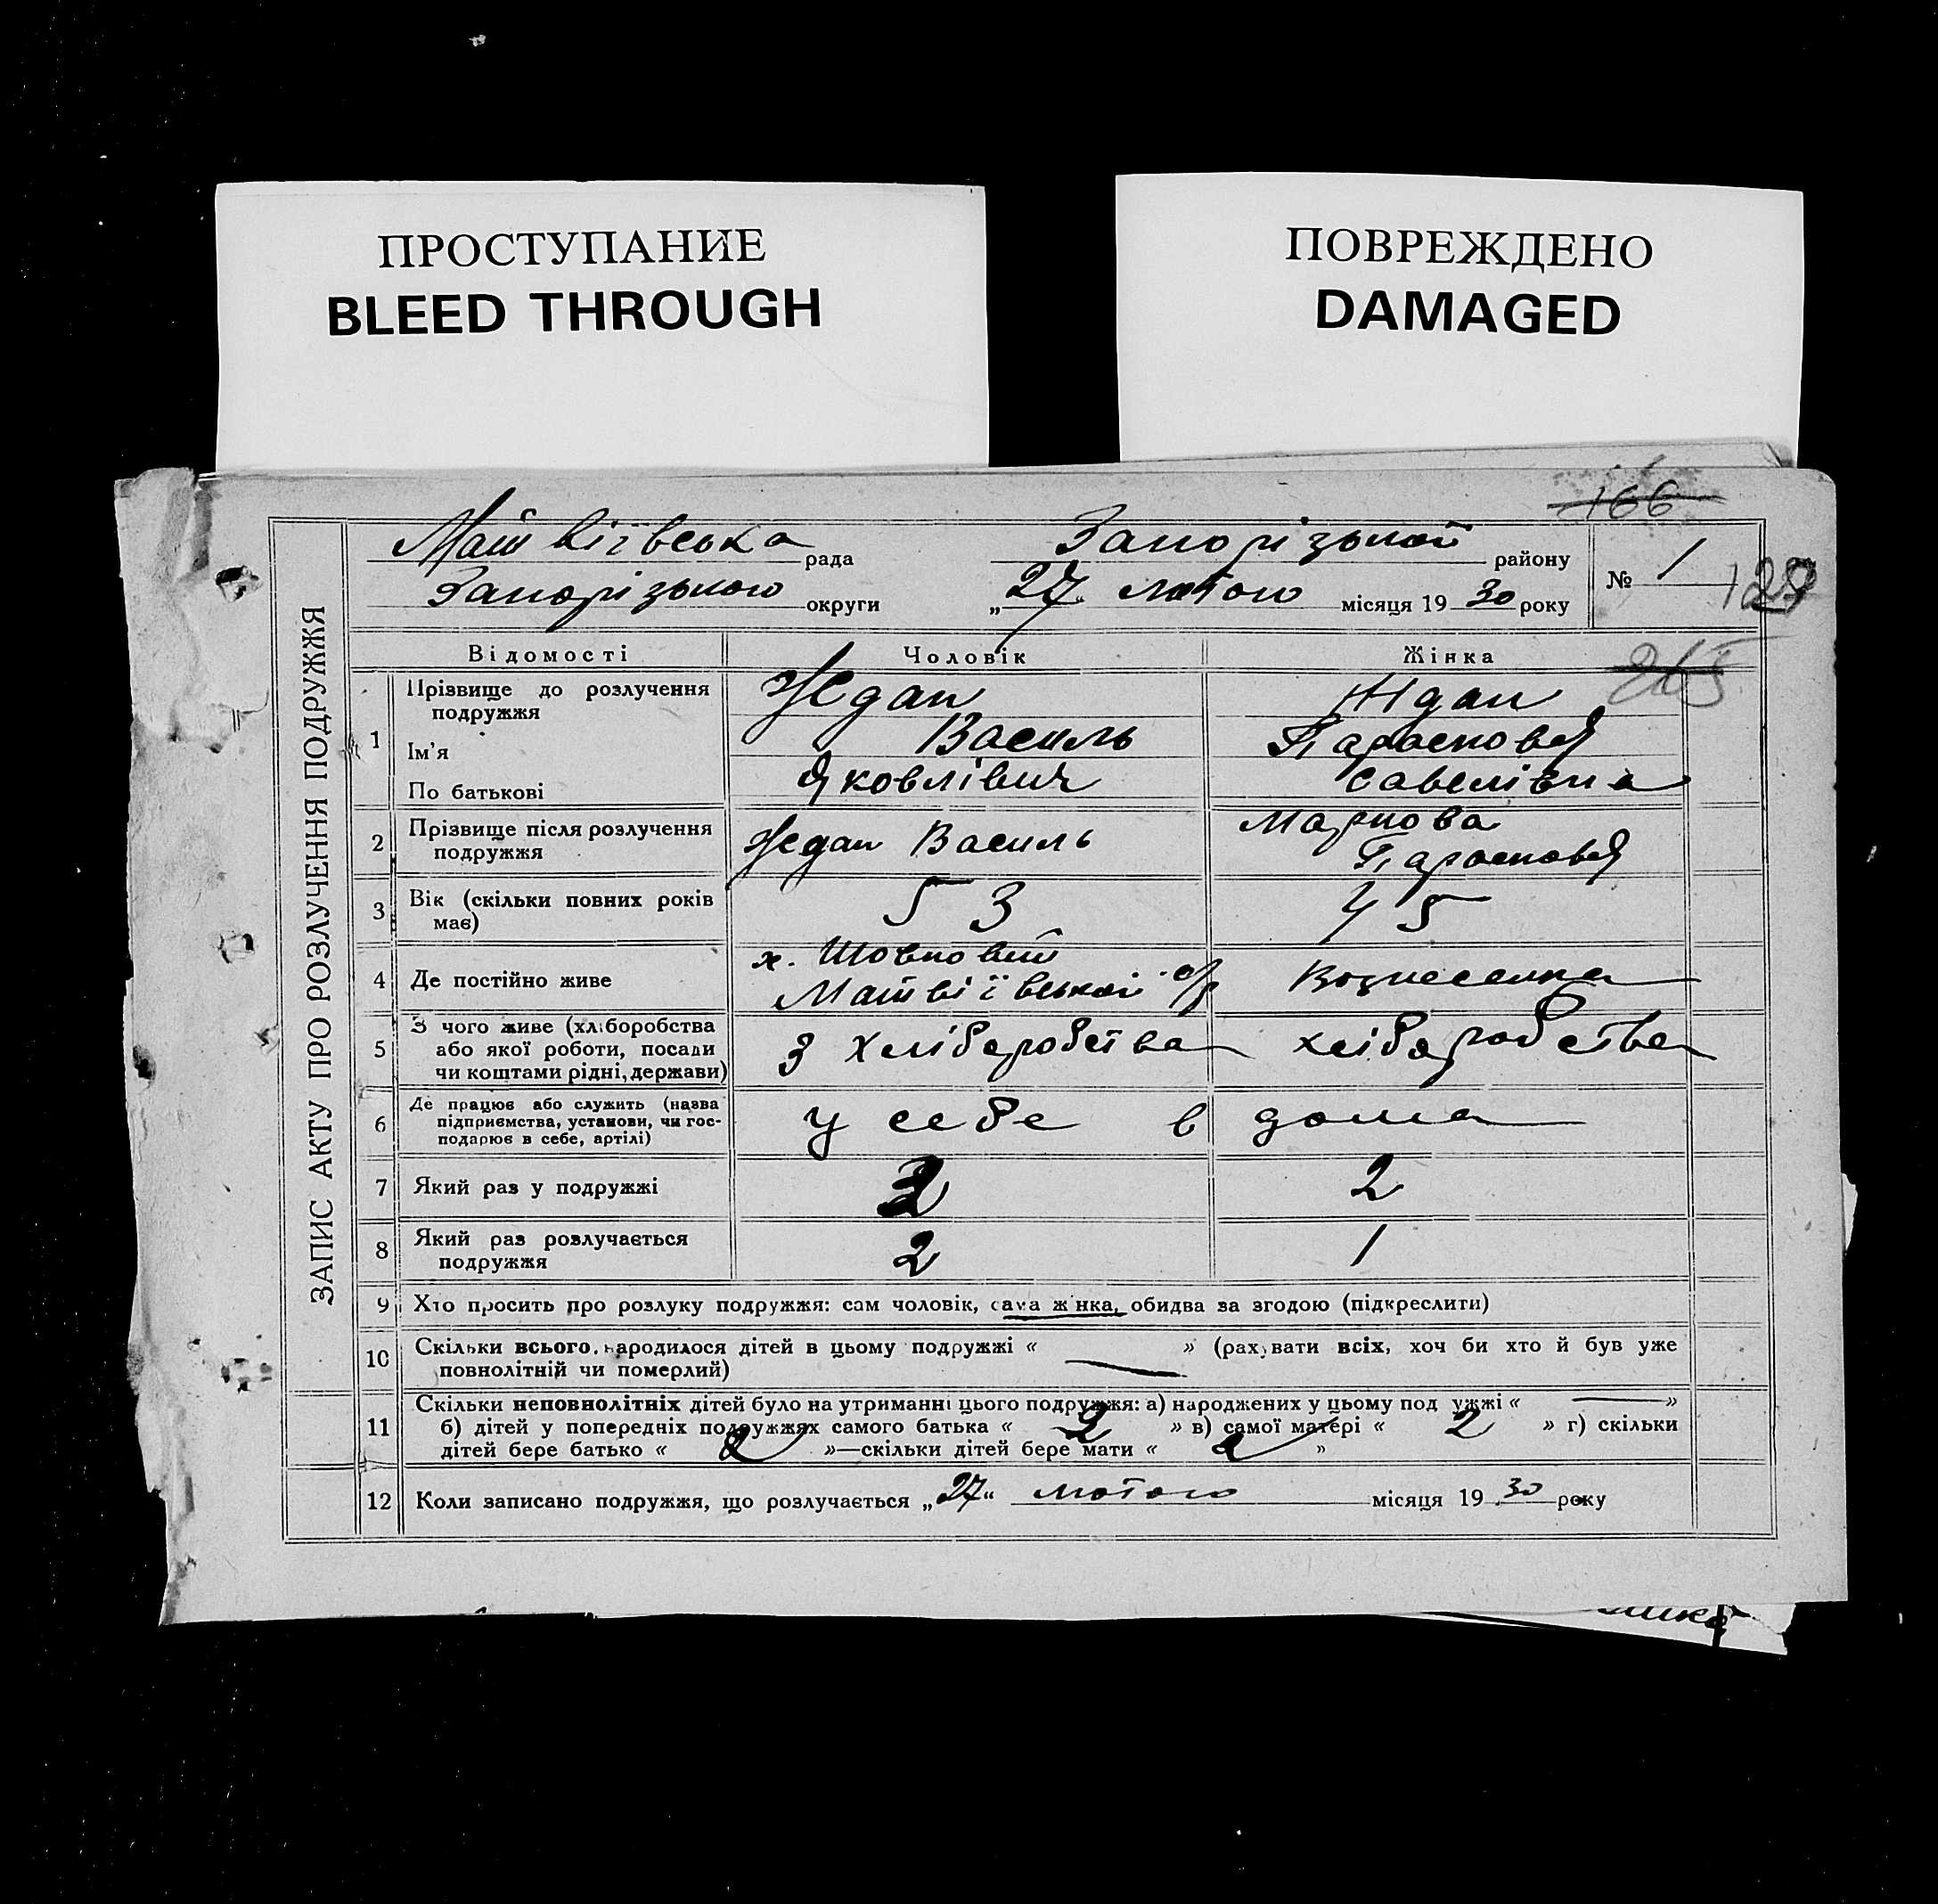 ПРОСТУПАНИЕ
BLEED THROUGH
ПОВРЕЖДЕНО
DAMAGED
166
Матвіївська рада Запорізької району № 1
Запорізького округи „27 лютого місяця 1930 року
129
ЗАПИС АКТУ ПРО РОЗЛУЧЕННЯ ПОДРУЖЖЯ
Відомості Чоловік Жінка
265
1 Прізвище до розлучення подружжя Жедан Ждан
Ім'я Василь Парасковея
По батькові Яковлівич Савелівна
2 Прізвище після розлучення Жедан Василь Маркова
подружжя Парасковея
3 Вік (скільки повних років 53 45
має)
4 Де постійно живе х. Шовковий
Матвіївської с/р Вознесенка
5 З чого живе (хліборобства
або якої роботи, посади з хліборобства хліборобства
чи коштами рідні, держави)
6 Де працює або служить (назва
підприємства, установи, чи гос- у себе в дома
подарює в себе, артілі)
7 Який раз у подружжі 2
8 Який раз розлучається 2 1
подружжя
9 Хто просить про розлуку подружжя: сам чоловік, сама жінка, обидва за згодою (підкреслити)
10 Скільки всього народилося дітей в цьому подружжі « — » (рахувати всіх, хоч би хто й був уже
повнолітній чи померлий)
11 Скільки неповнолітніх дітей було на утриманні цього подружжя: а) народжених у цьому подружжі « — »
б) дітей у попередніх подружжях самого батька « 2 » в) самої матері « 2 » г) скільки
дітей бере батько « 2 »—скільки дітей бере мати « »
12 Коли записано подружжя, що розлучається „27“ лютого місяця 1930 року